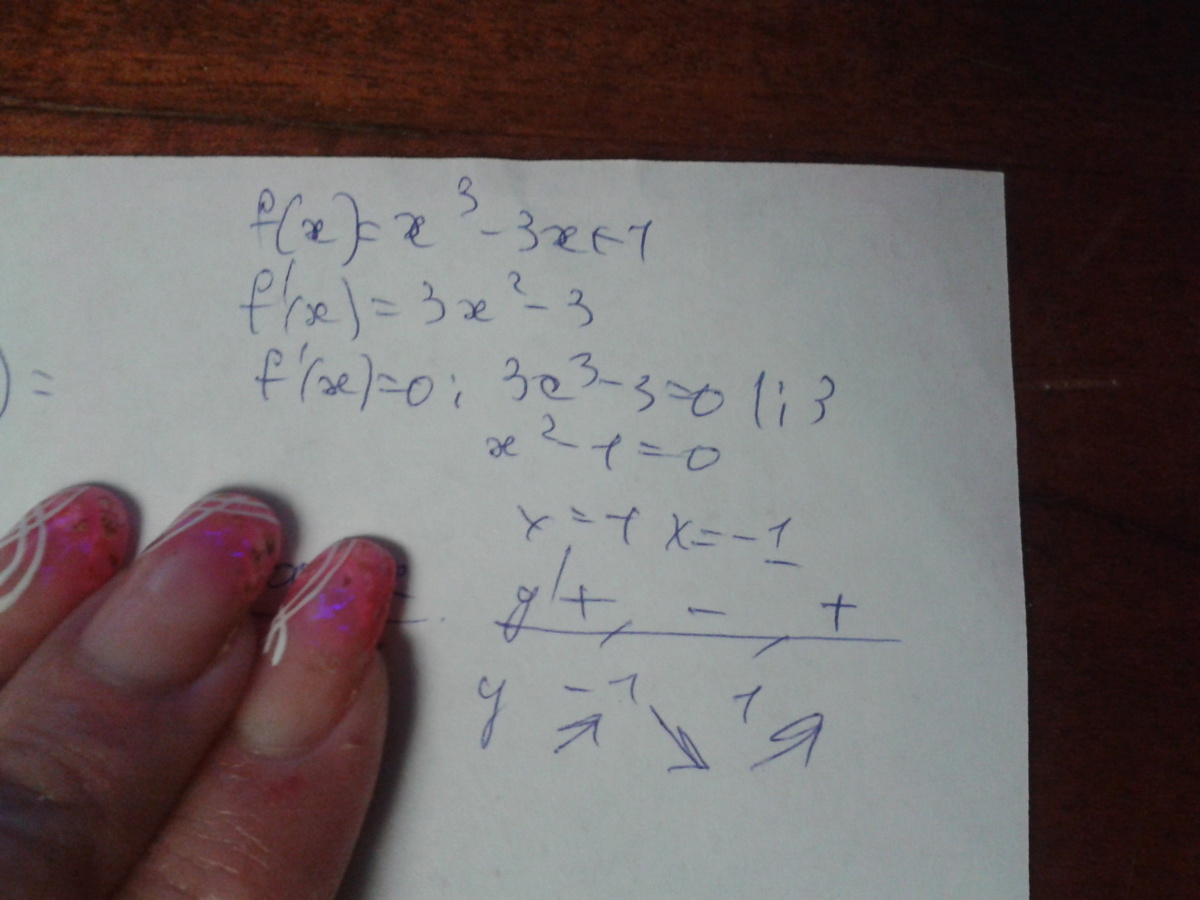 f(x)=x³-3x+1
f'(x)=3x²-3
) =
f'(x)=0; 3x³-3=0 |:3
x²-1=0
x=1 x=-1
y' + - +
y -1 1
↗ ↘ ↗